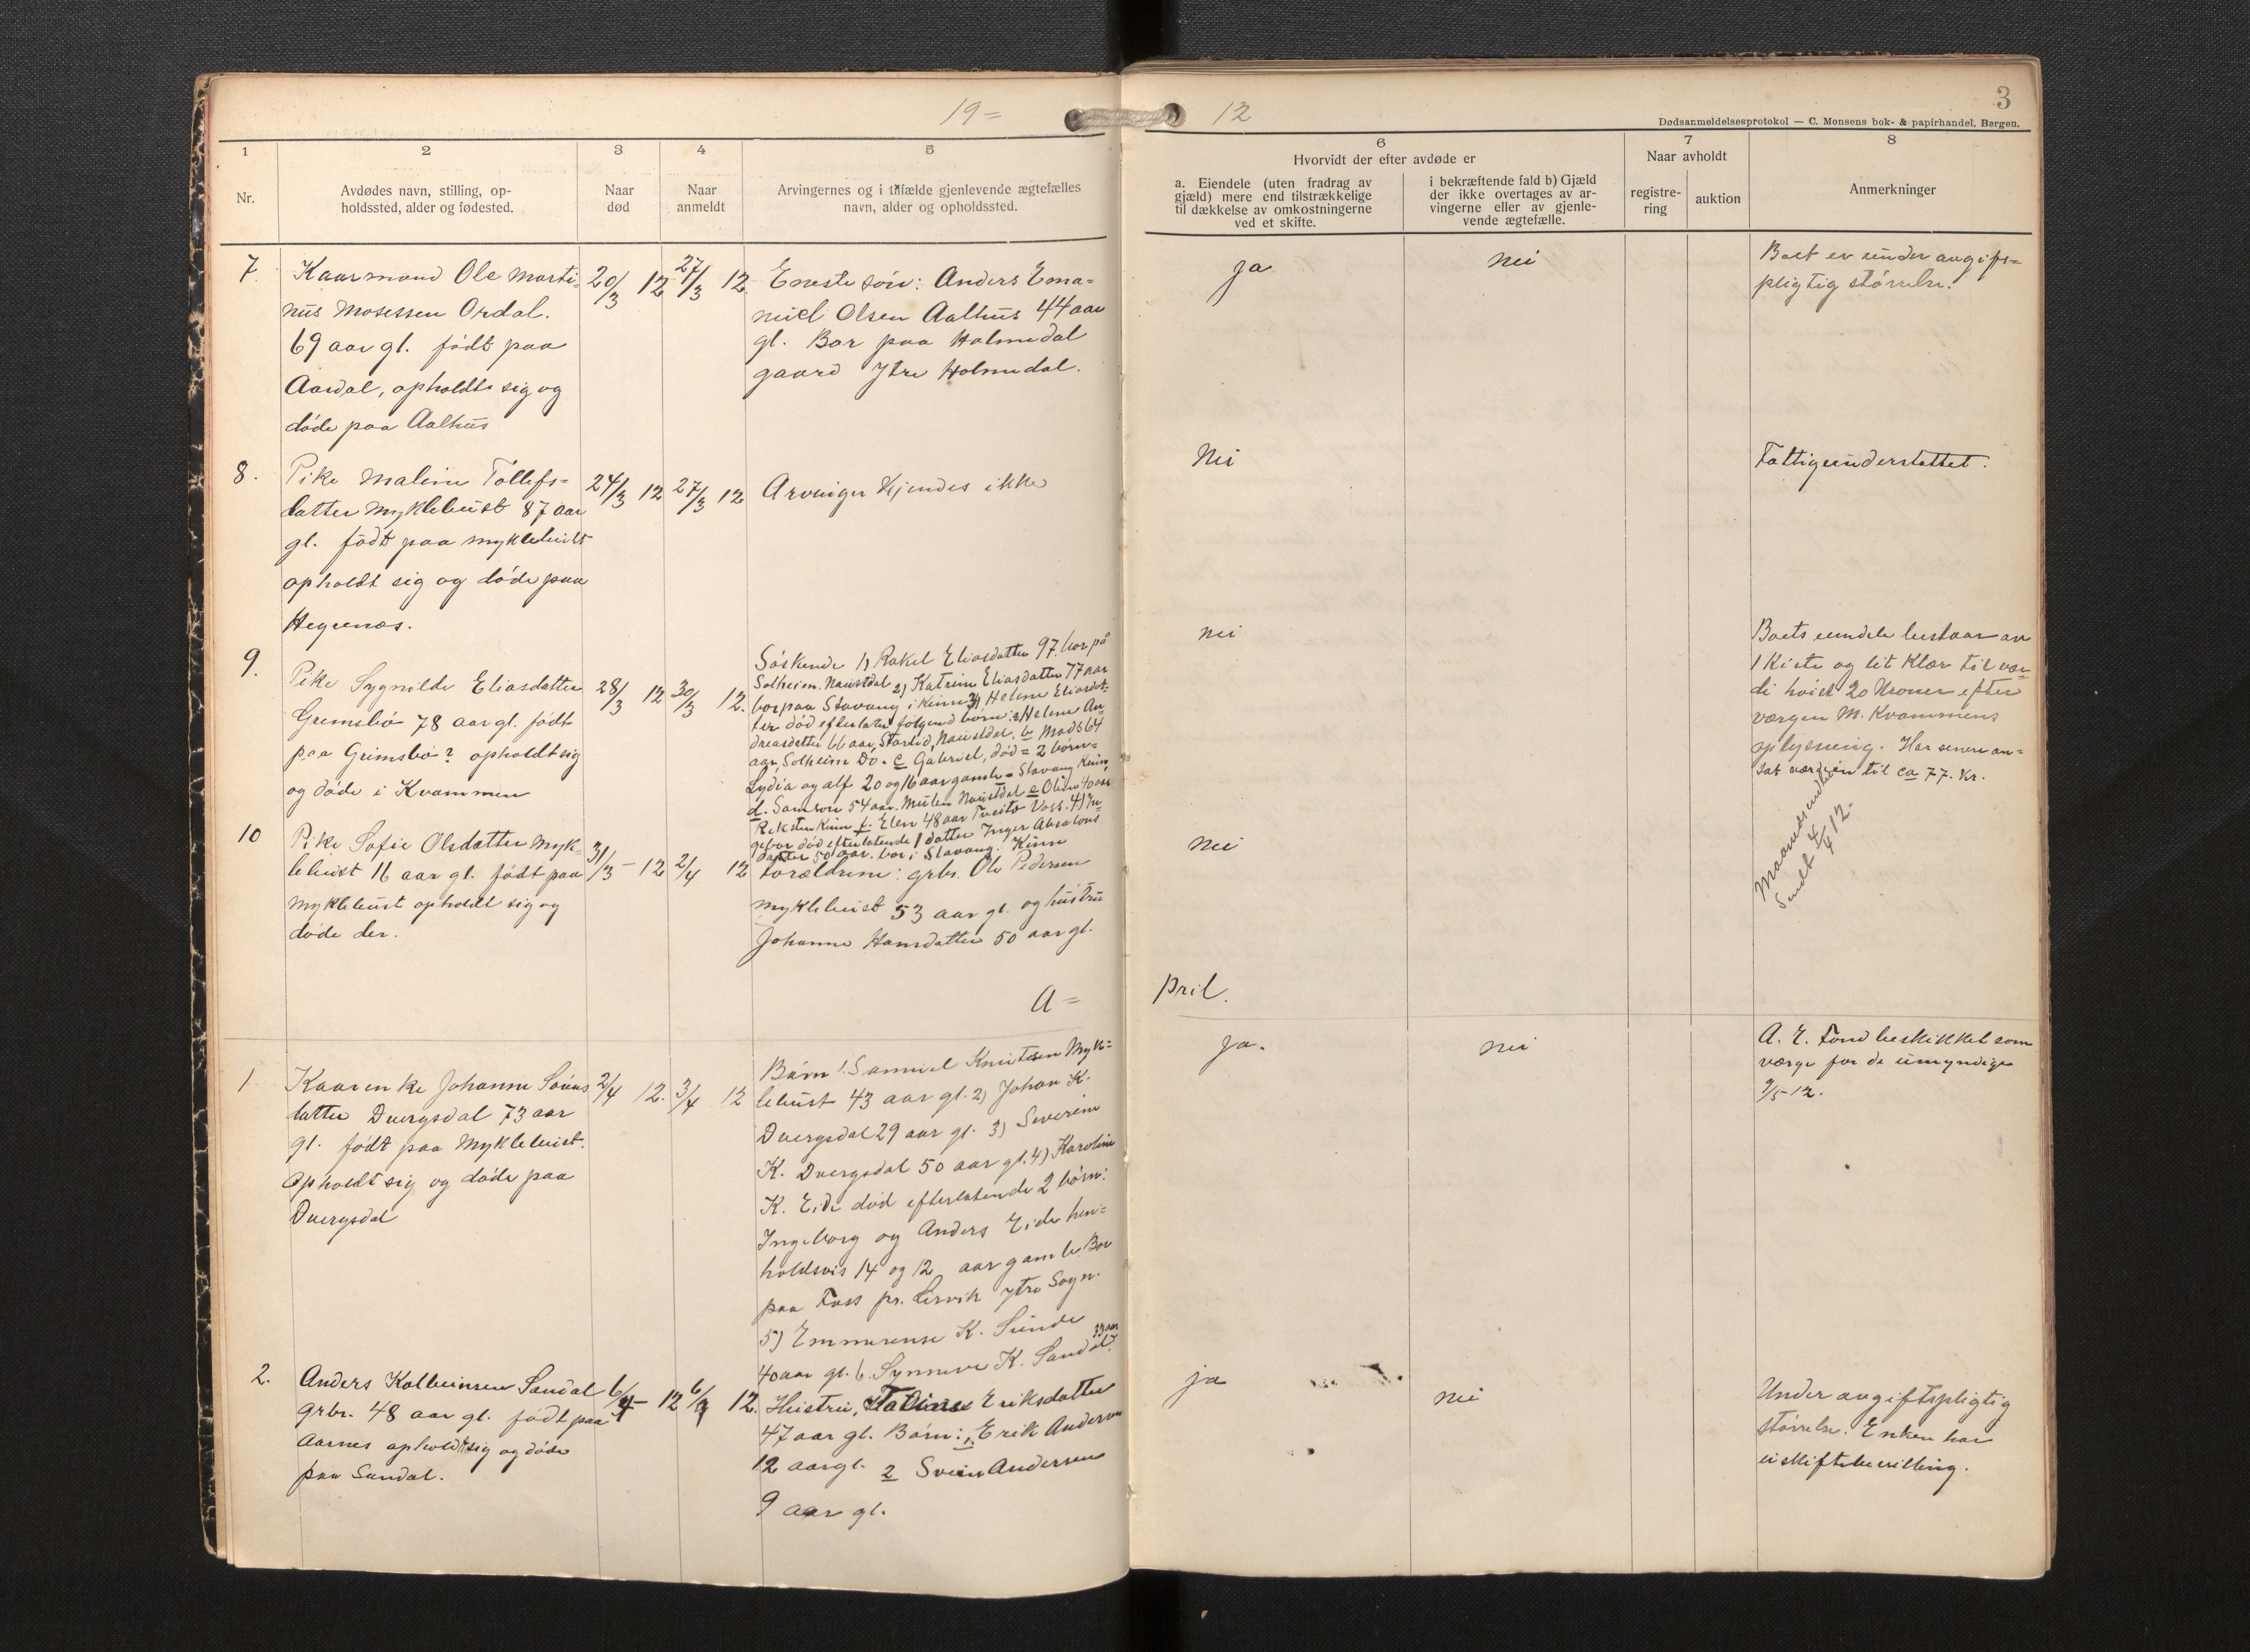 19=
12
3
Dødsanmeldelsesprotokol — C. Monsens bok- & papirhandel, Bergen.
1
2
3
4
5
Nr.
Avdødes navn, stilling, op-
holdssted, alder og fødested.
Naar
død
Naar
anmeldt
Arvingernes og i tilfælde gjenlevende ægtefælles
navn, alder og opholdssted.
6
Hvorvidt der efter avdøde er
a. Eiendele (uten fradrag av
gjæld) mere end tilstrækkelige
til dækkelse av omkostningerne
ved et skifte.
i bekræftende fald b) Gjæld
der ikke overtages av ar-
vingerne eller av gjenle-
vende ægtefælle.
7
Naar avholdt
registre-
ring
auktion
8
Anmerkninger
7
Kaarmand Ole Marti-
nus Mosessen Ordal.
69 aar gl. født paa
Aardal, opholdte sig og
døde paa Aalhus
20/3 12
27/3 12
Eneste søn: Anders Ema-
nuel Olsen Aalhus 44 aar
gl. Bor paa Holmedal
gaard Ytre Holmedal.
ja
nei
Boet er under avgifs=
pligtig størrelse.
8.
Pike Maline Tollefs-
datter Myklebust 87 aar
gl. født paa Myklebust
opholdt sig og døde paa
Hegrenæs.
24/3 12
27/3 12
Arvinger kjendes ikke
Nei
Fattigunderstøttet.
9.
Pike Sygnilde Eliasdatter
Gremsbø 78 aar gl. født
paa Grimsbø? opholdt sig
og døde i Kvammen
28/3 12
30/3 12.
Søskende 1) Rakel Eliasdatter 97. bor på
Solheim. Naustdal 2) Katrine Eliasdatter 77 aar
bor paa Stavang i Kinn 3) Helene Eliasdat-
ter død efterlater følgend børn: a Helene An-
dreasdatter 66 aar, Naustdal. b Mads 64
aar, Solheim Do. c Gabriel, død = 2 børn=
Lydia og Alf 20 og 16 aar gamle = Stavang Kinn,
d. Samson 54 aar. Naustdal e Oline 40 aar
Reksten Kinn f. Elen 48 aar Voss. 4) In-
gebor død efterlatende 1 datter Inger Absalons
datter 50 aar. bor i Stavang. Kinn
nei
Boets eiendele bestaar av
1 Kiste og lit Klær til vær-
di høist 20 Kroner efter
værgen M. Kvammens
oplysning. Har senere an=
sat værdien til ca 77. Kr.
10
Pike Sofie Olsdatter Myk=
lebust 16 aar gl. født paa
Myklebust opholdt sig og
døde der.
31/3 - 12
2/4 12
Forældrene: grbr. Ole Pedersen
Myklebust 53 aar gl. og hustru
Johanne Hansdatter 50 aar gl.
nei
Sendt 4/4 12.
A=
pril.
1
Kaarenke Johanne Søens
datter Dvergsdal 73 aar
gl. født paa Myklebust.
Opholdt sig og døde paa
Dvergsdal
2/4 12.
3/4 12
Børn 1. Samuel Knutsen Myk=
lebust 43 aar gl. 2) Johan K.
Dvergsdal 29 aar gl. 3) Severine
K. Dvergsdal 50 aar gl. 4) Karoline
K. Eide død efterlatende 2 børn:
Ingeborg og Anders Eide hen=
holdsvis 14 og 12 aar gamle. Bor
paa Foss pr. Lervik Ytre Sogn.
5) Emmerense K. Sunde
40 aar gl. 6. Synneve K. Sandal. 33 aar
ja.
nei
A. E. Fond beskikket som
værge for de umyndige
9/5-12.
2.
Anders Kolbeinsen Sandal
grbr. 48 aar gl. født paa
Aarnes opholdt sig og døde
paa Sandal.
6/4 - 12
6/4 12.
Hustru, Eriksdatter
47 aar gl. Børn: 1. Erik Andersen
12 aar gl. 2 Svein Andersen
9 aar gl.
ja
nei
Under avgiftspligtig
størrelse. Enken har
uskiftebevilling.